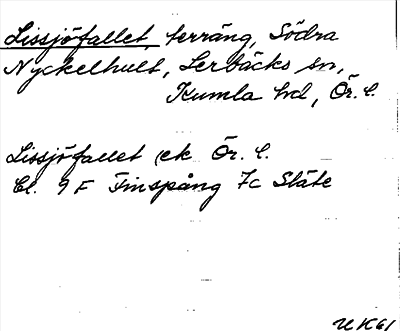 Lissjöfallet, terräng, Södra
Nyckelhult, Lerbäcks sn,
Kumla hd, Ör. l.
Lissjöfallet ek Ör. l.
Bl. 9 F Finspång 7c Släte
U K61